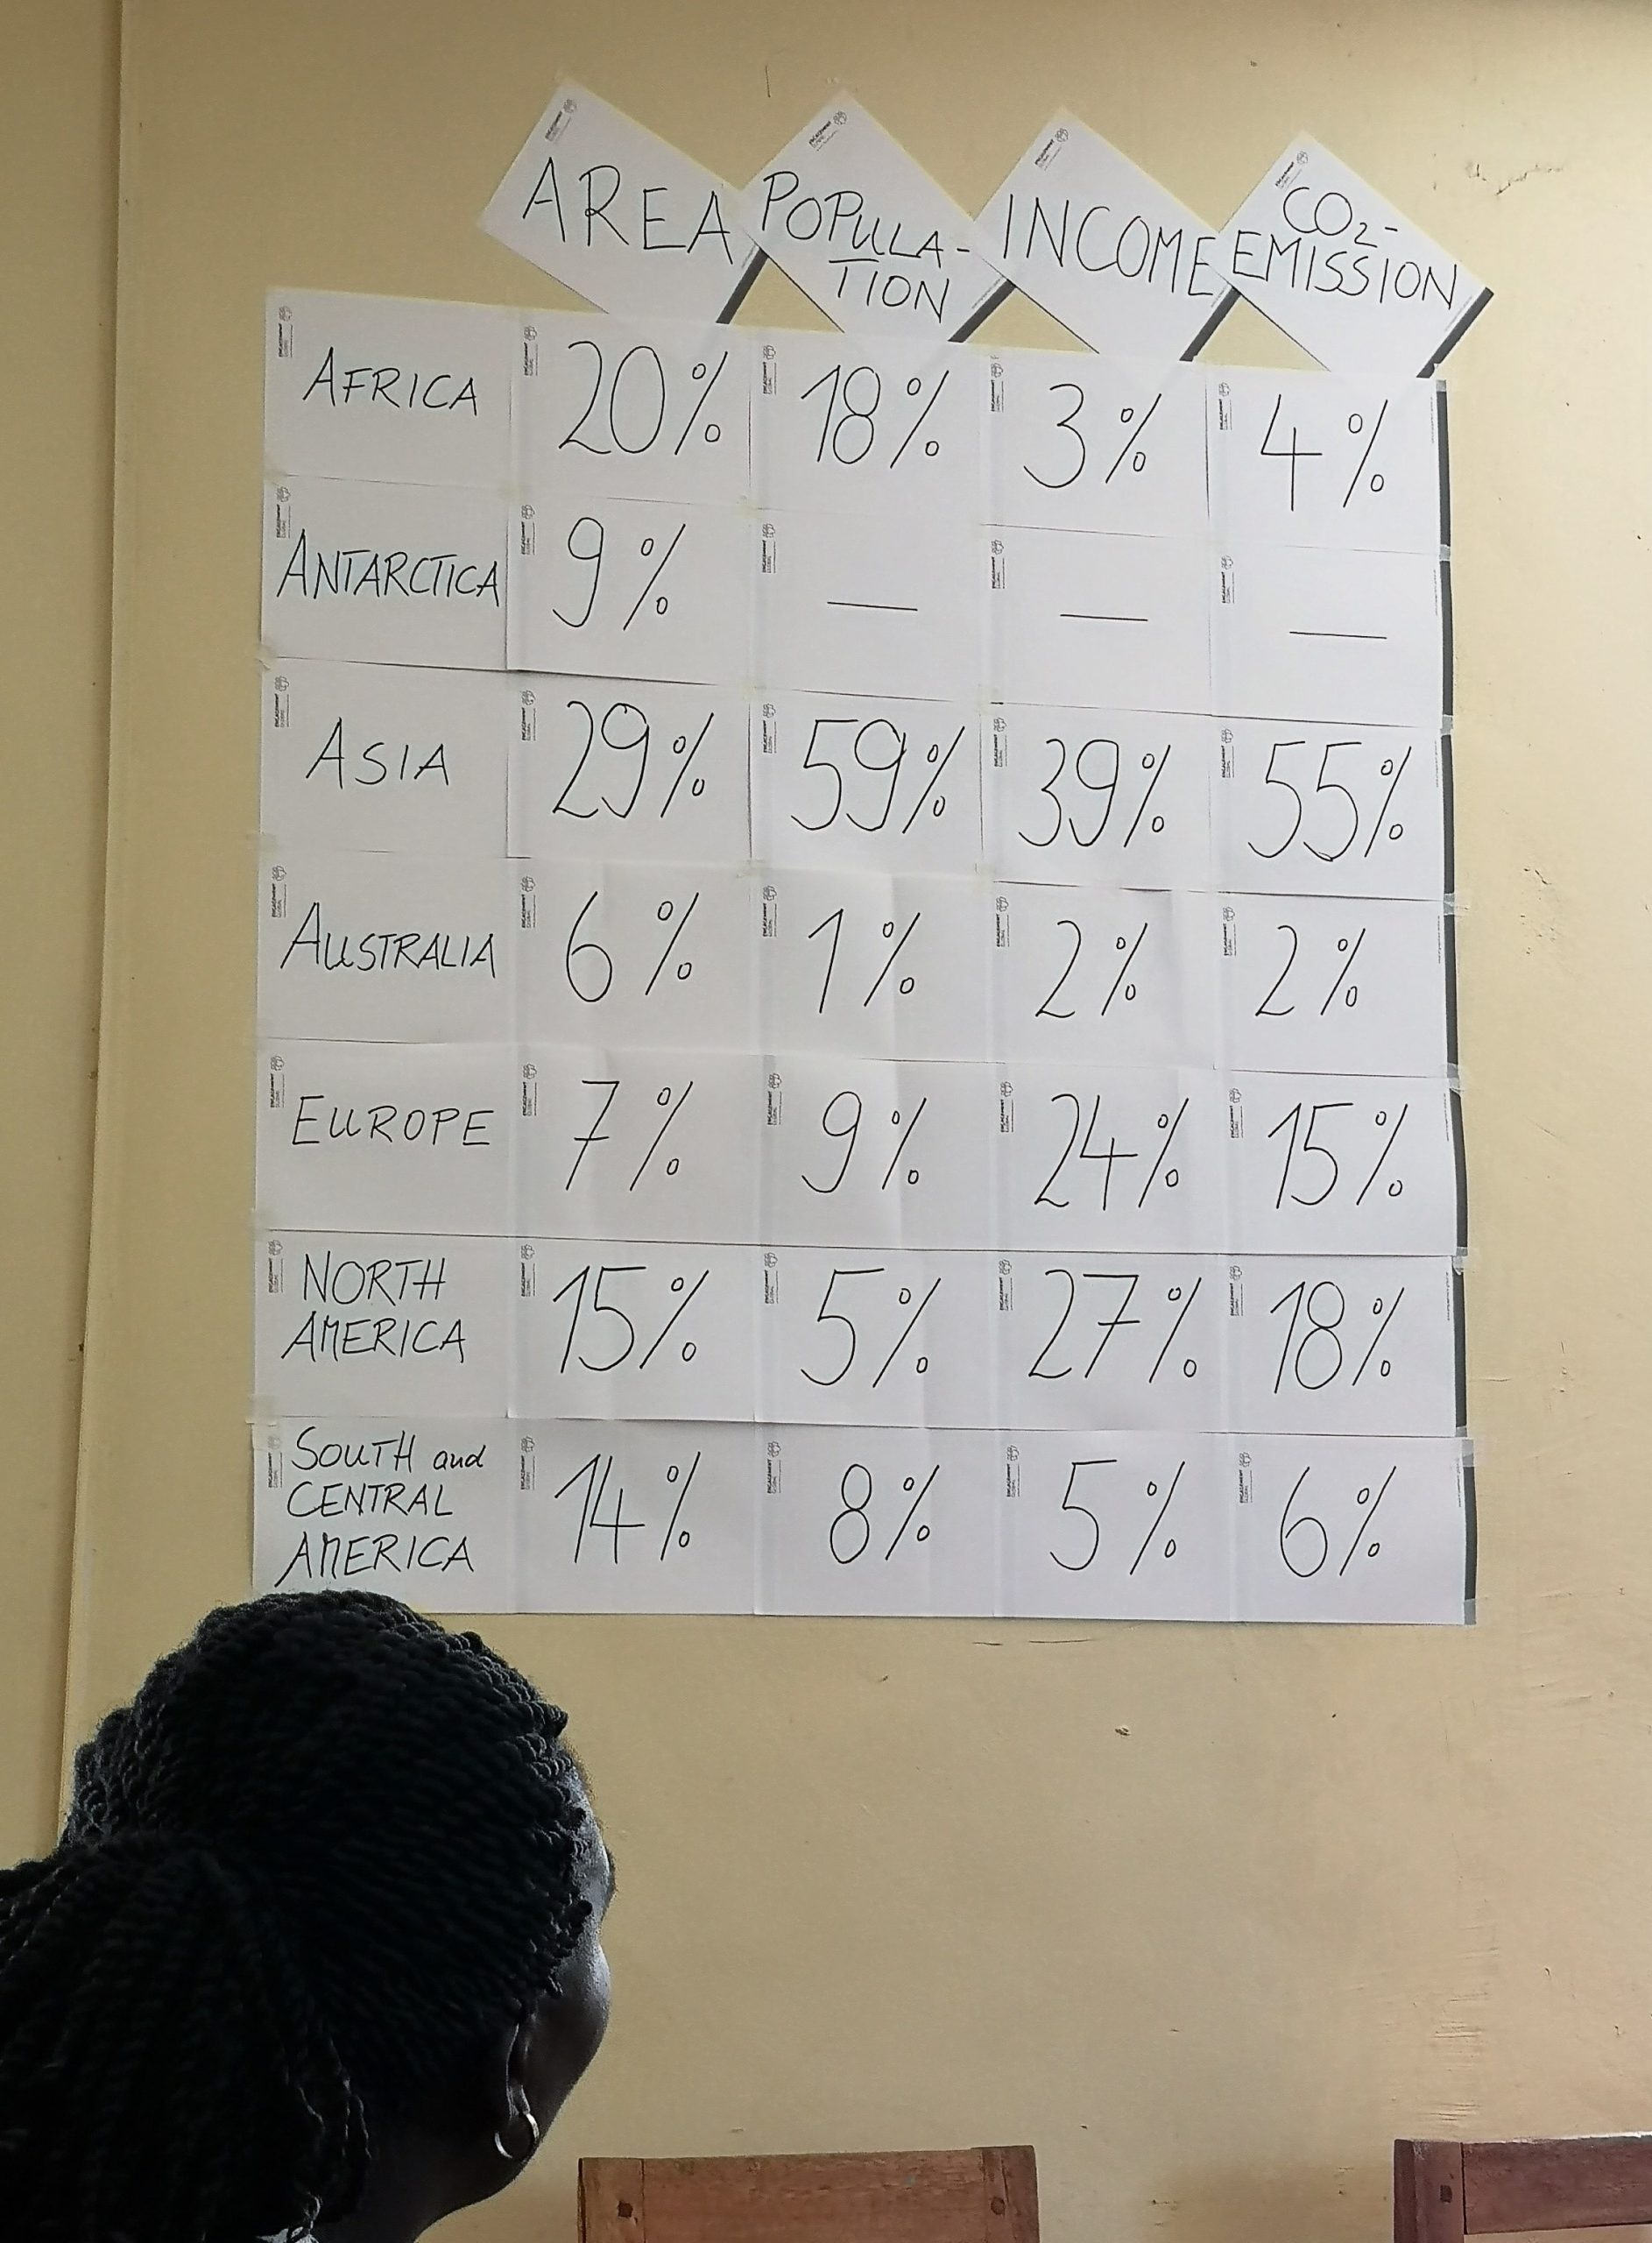 AREA POPULA-
TION INCOME CO₂-
EMISSION
AFRICA 20% 18% 3% 4%
ANTARCTICA 9% — — —
ASIA 29% 59% 39% 55%
AUSTRALIA 6% 1% 2% 2%
EUROPE 7% 9% 24% 15%
NORTH
AMERICA 15% 5% 27% 18%
SOUTH and
CENTRAL
AMERICA 14% 8% 5% 6%
ENGAGEMENT
GLOBAL